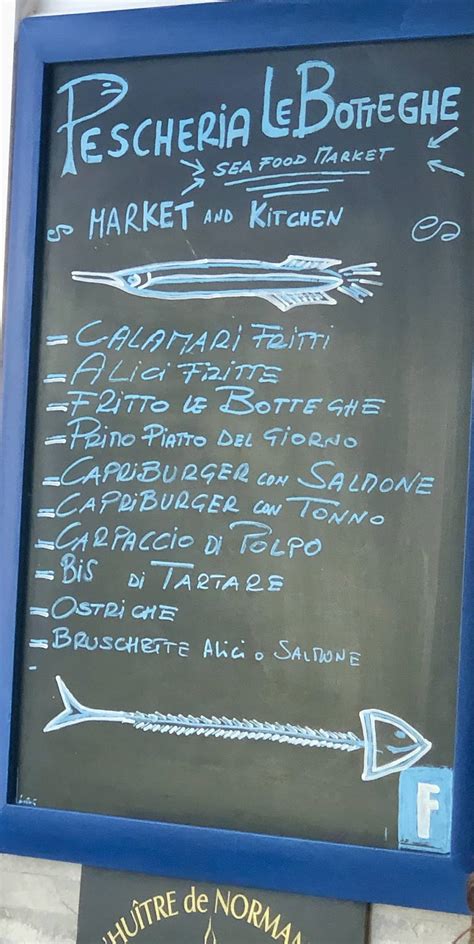 PESCHERIA LE BOTTEGHE
SEA FOOD MARKET
MARKET AND KITCHEN
= CALAMARI FRITTI
= ALICI FRITTE
= FRITTO LE BOTTEGHE
= PRIMO PIATTO DEL GIORNO
= CAPRIBURGER CON SALMONE
= CAPRIBURGER CON TONNO
= CARPACCIO DI POLPO
= BIS DI TARTARE
= OSTRICHE
= BRUSCHETTE ALICI O SALMONE
F
HUÎTRE de NORMAN